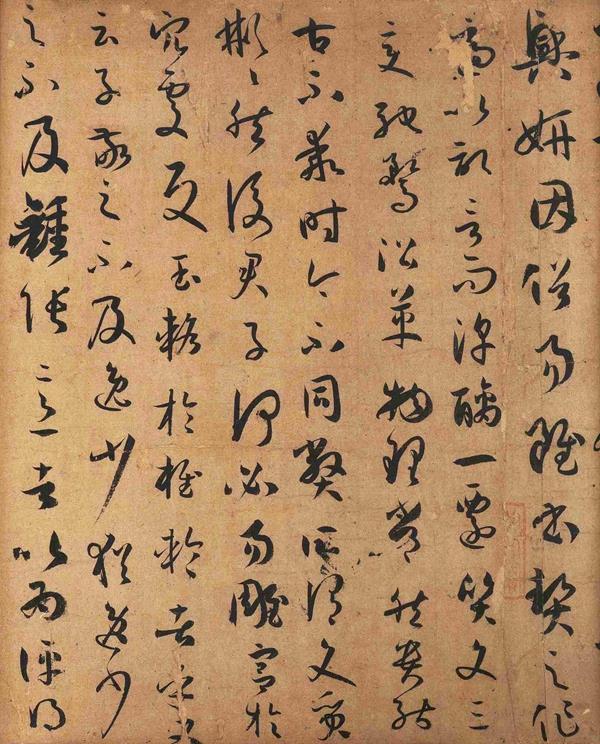 興妍因俗易雖書契之作
適以記言而淳醨一遷質文三
變馳騖沿革物理常然貴能
古不乖時今不同弊所謂文質
彬彬然後君子何必易雕宮於
穴處反玉輅於椎輪者乎又
云子敬之不及逸少猶逸少
之不及鍾張意者以為評得